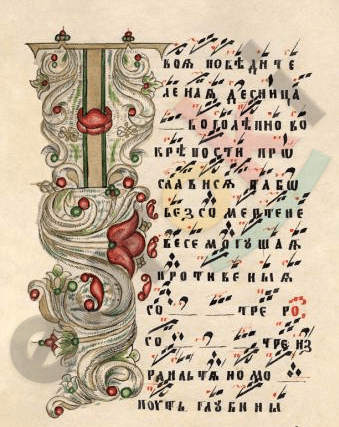 ТВОѦ ПОБѢДИТЕ
ЛЕНАѦ ДЕСНИЦА
БОГОЛѢПНО ВО
КРѢПОСТИ ПРѠ
СЛАВИСѦ ТАБѠ
БЕЗСОМЕРТЕНЕ
ВЕСЕМОГУЩАѦ
ПРОТИВЕНЫѦ
СО ТРЕ РО
СО ТРЕ ИЗ
РАИЛЬТѦНОМО
ПОУТЬ ГЛУБИНЫ